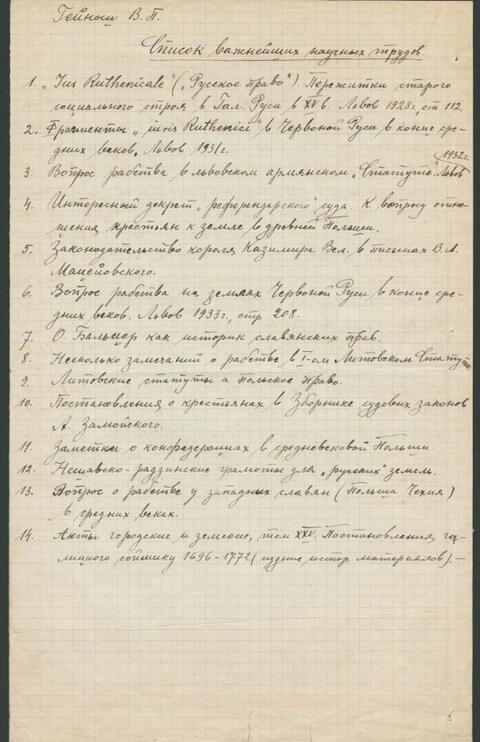 Гейнош В. П.
Список важнейших научных трудов.
1. „Ius Ruthenicale“ („Русское право“) Пережитки старого
социального строя в Гал. Руси в XV в. Львов 1928г, ст. 112.
2. Фрагменты „iuris Ruthenici“ в Червоной Руси в конце сре-
дних веков. Львов 1931г.
3. Вопрос рабства в львовском армянском „Статуте“. Львов 1932г.
4. Интересный декрет „референдарского“ суда. К вопросу отно-
шения крестьян к земле в древной Польши.
5. Законодательство короля Казимира Вел. в письмах В. А.
Мацейовского.
6. Вопрос рабства на землях Червоной Руси в конце сре-
дних веков. Львов 1933г., стр 208.
7. О. Бальцер как историк славянских прав.
8. Несколько замечаний о рабстве в I-ом Литовском Статуте
9. Литовские статуты а польское право.
10. Постановления о крестьянах в Зборнике судовых законов
А. Замойского.
11. Заметки о конфедерациях в средневековой Польши.
12. Нешавско-радзинские грамоты для „русских“ земель.
13. Вопрос о рабстве у западных славян (Польша Чехия)
в средних веках.
14. Акты городские и земские, том XXV. Постановления га-
лицкого сойшику 1696-1772 (издние истор материалов). —